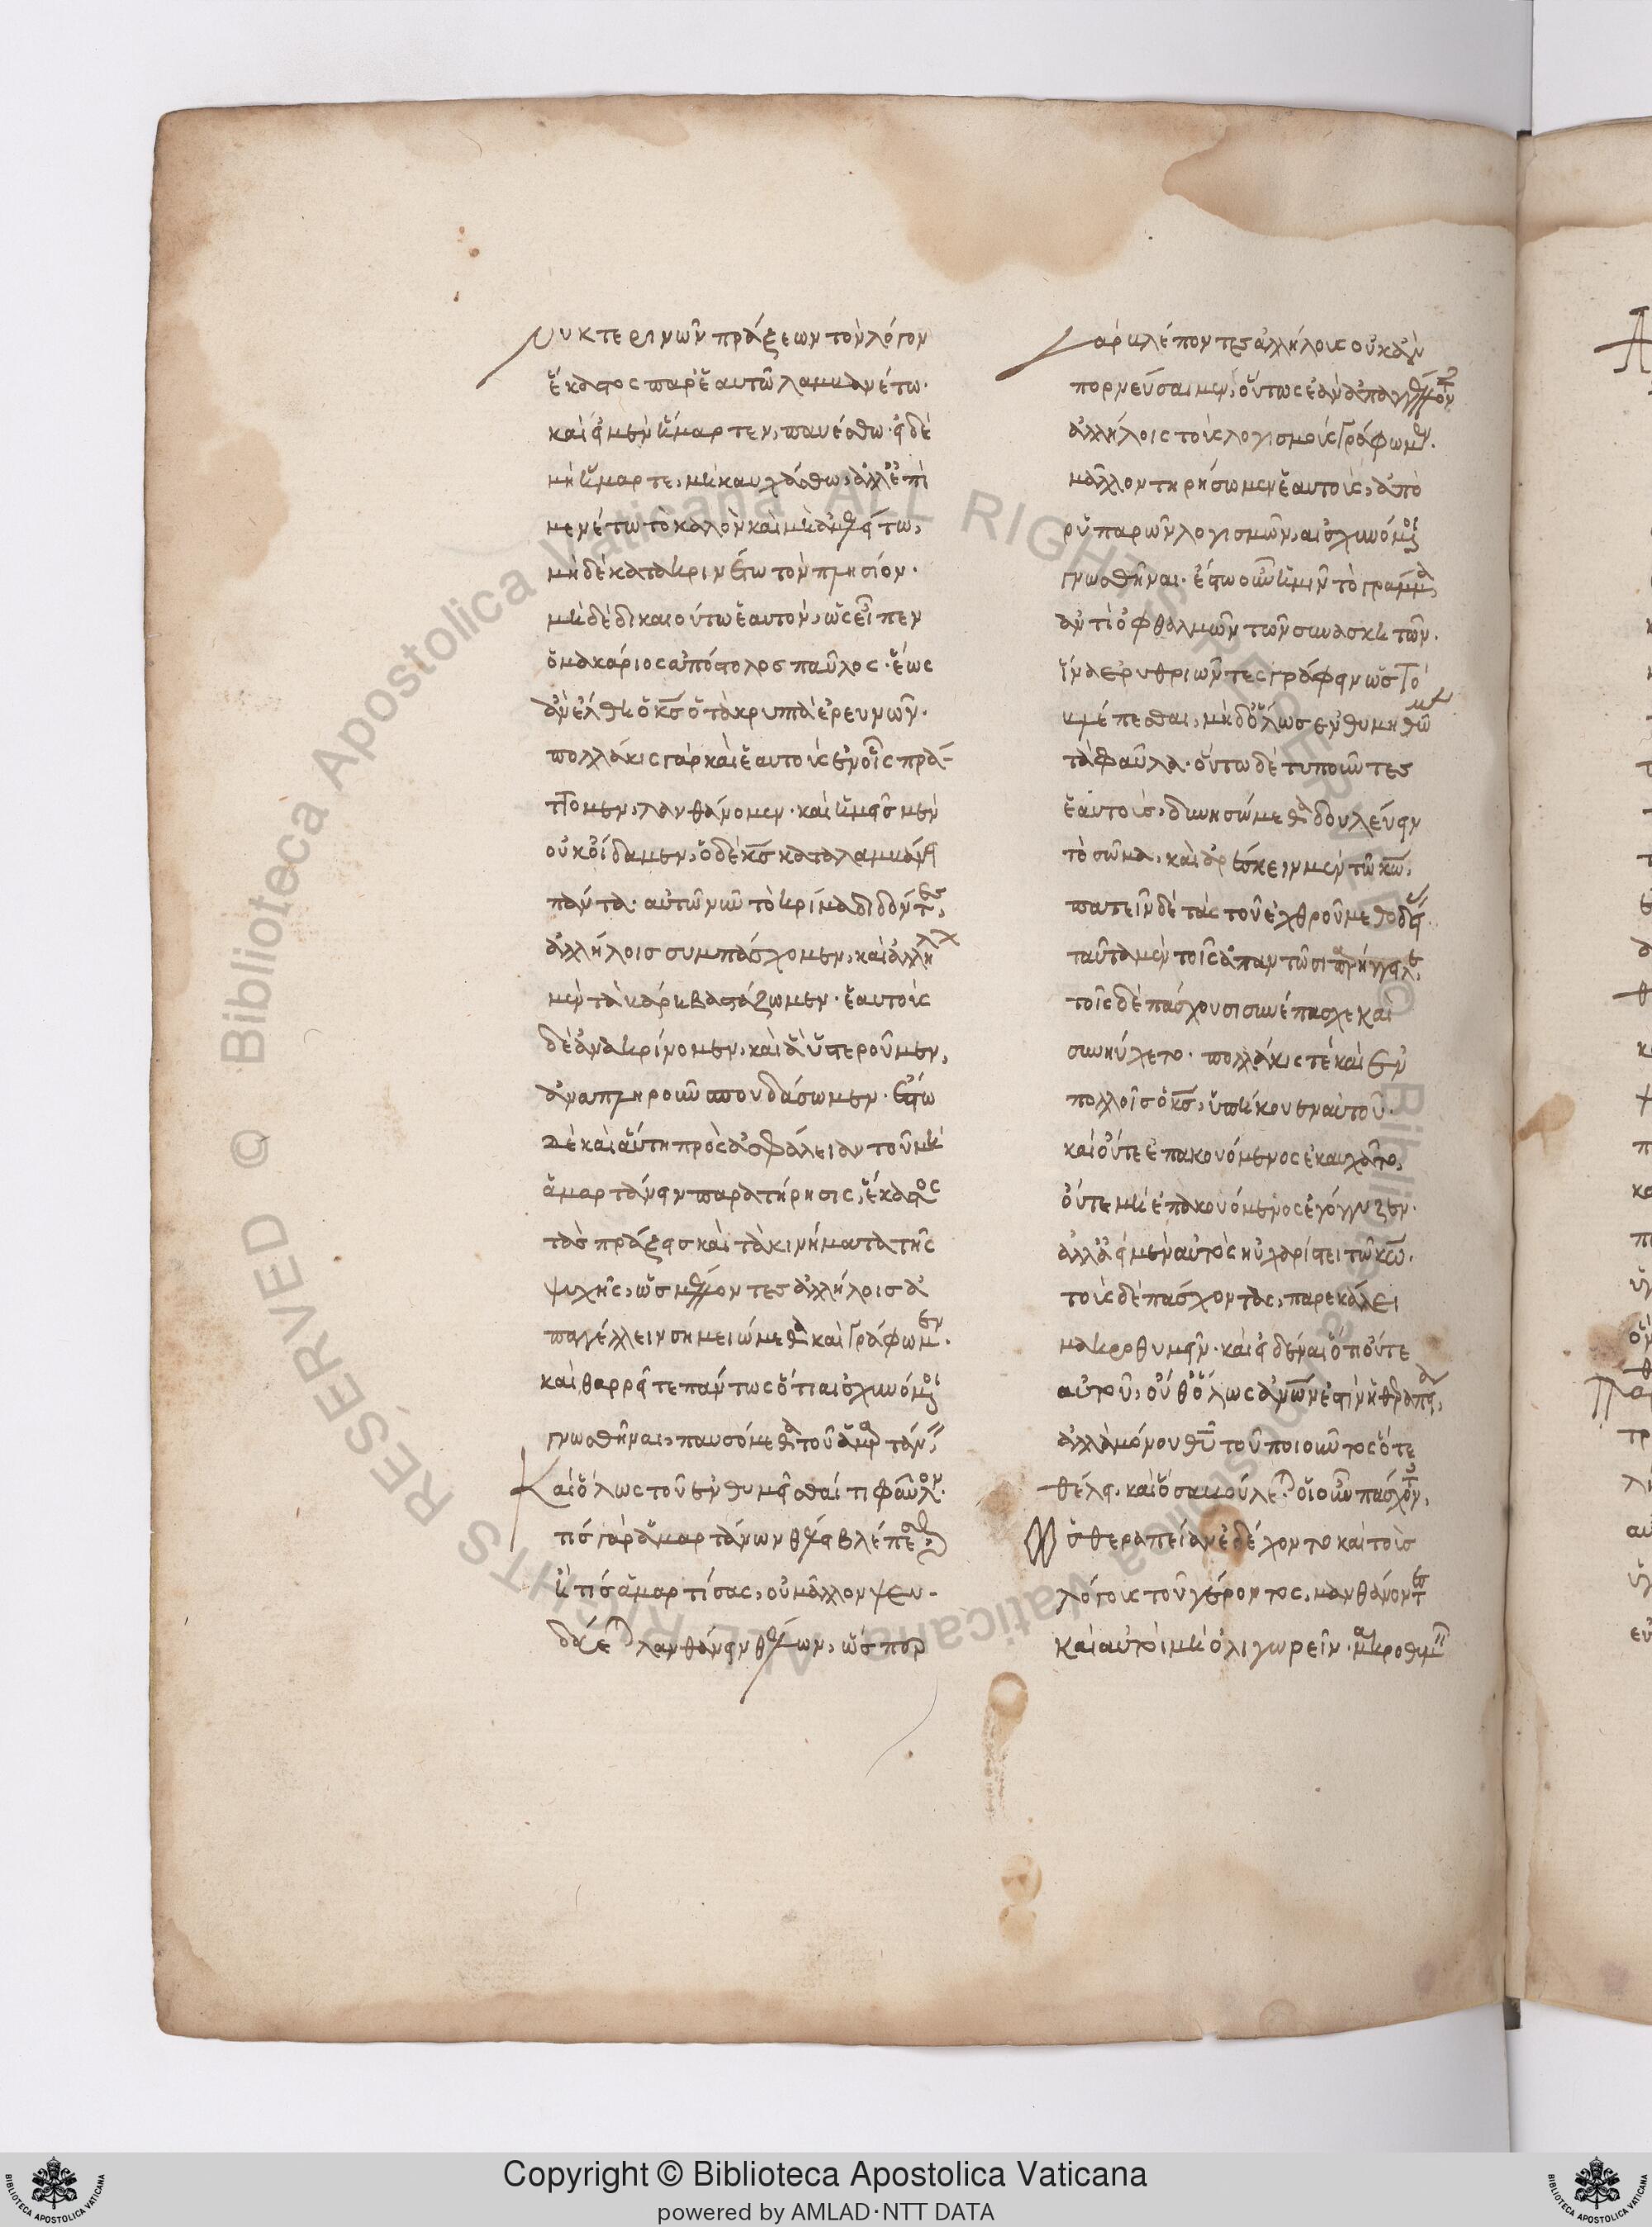 νυκτερινῶν πράξεων τὸν λόγον
ἕκαστος παρ' ἑαυτῶ λαμβανέτω·
καὶ εἰ μὲν ἥμαρτεν, παυέσθω· εἰ δὲ
μὴ ἥμαρτε, μὴ καυχάσθω, ἀλλ' ἐπι
μενέτω τὸ καλὸν καὶ μὴ ἀμελείτω,
μὴ δὲ κατακρινέτω τὸν πλησίον·
μὴ δὲ δικαιούτω ἑαυτὸν, ὡς εἶπεν
ὁ μακάριος ἀπόστολος παῦλος· ἕως
ἂν ἔλθη ὁ κς ὁ τὰ κρυπτὰ ἐρευνῶν·
πολλάκις γὰρ καὶ ἑαυτοὺς ἐν οἷς πρά
ττομεν, λανθάνομεν· καὶ ἡμεῖς μὲν
οὐκ οἴδαμεν, ὁ δὲ κς καταλαμβάνει
πάντα· αὐτῶ οὖν τὸ κρίμα διδόντες,
ἀλλήλοις συμπάσχομεν, καὶ ἀλλήλ
μὲν τὰ βάρη βαστάζωμεν· ἑαυτοὺς
δὲ ἀνακρίνομεν, καὶ ἃ ὑστεροῦμεν,
ἀναπληροῦν σπουδάσωμεν· ἔστω
δὲ καὶ αὕτη πρὸς ἀσφάλειαν τοῦ μὴ
ἁμαρτάνειν παρατήρησις, ἕκαστος
τὰς πράξεις καὶ τὰ κινήματα τῆς
ψυχῆς, ὡς μέλλοντες ἀλλήλοις ἀ
παγέλλειν σημειώμεθα καὶ γράφωμεν·
καὶ θαρρεῖτε πάντως ὅτι αἰσχυνόμενοι
γνωσθῆναι, παυσόμεθα τοῦ ἁμαρτάνειν
καὶ ὅλως τοῦ ἐνθυμεῖσθαί τι φαῦλον·
τίς γὰρ ἁμαρτάνων θέλει βλέπεσθαι;
ἢ τίς ἁμαρτήσας, οὐ μᾶλλον ψεύ
δεται λανθάνειν θέλων, ὥσπερ
γὰρ βλέποντες ἀλλήλους οὐκ ἂν
πορνεύσαιμεν, οὕτως ἐὰν ὡς ἀπαγγέλλοντες
ἀλλήλοις τοὺς λογισμοὺς γράφωμεν·
μᾶλλον τηρήσωμεν ἑαυτοὺς, ἀπὸ
ρυπαρῶν λογισμῶν, αἰσχυνόμενοι
γνωσθῆναι· ἔστω οὖν ἡμῖν τὸ γράμμα,
ἀντὶ ὀφθαλμῶν τῶν συνασκητῶν·
ἵνα ἐρυθριῶντες γράφειν ὡς τὸ
βλέπεσθαι, μὴ δ' ὅλως ἐνθυμηθῶμεν
τὰ φαῦλα· οὕτω δὲ τυποῦντες
ἑαυτοὺς, δυνησώμεθα δουλεύειν
τὸ σῶμα, καὶ ἀρέσκειν μὲν τῶ κω,
πατεῖν δὲ τὰς τοῦ ἐχθροῦ μεθοδείας·
ταῦτα μὲν τοῖς ἀπαντῶσι παρήγγελε,
τοῖς δὲ πάσχουσι συνέπασχε καὶ
συνηύχετο· πολλάκις τὲ καὶ ἐν
πολλοῖς ὁ κς, ὑπήκουεν αὐτοῦ·
καὶ οὔτε ἐπακουόμενος ἐκαυχᾶτο,
οὔτε μὴ ἐπακουόμενος ἐγόγγυζεν·
ἀλλ' ἀεὶ μὲν αὐτὸς ηὐχαρίστει τῶ κω·
τοὺς δὲ πάσχοντας, παρεκάλει
μακροθυμεῖν· καὶ εἰδέναι ὅτι οὔτε
αὐτοῦ, οὔθ' ὅλως ἀνων ἐστὶν ἡ θεραπεία,
ἀλλὰ μόνου θυ τοῦ ποιοῦντος ὅτε
θέλει. καὶ ὅσα βούλεται· οἱ οὖν πάσχοντες,
ὡς θεραπείαν ἐδέχοντο καὶ τοὺς
λόγους τοῦ γέροντος, μανθάνοντες
καὶ αὐτοὶ μὴ ὀλιγωρεῖν· μακροθυμεῖν
Copyright © Biblioteca Apostolica Vaticana
powered by AMLAD·NTT DATA